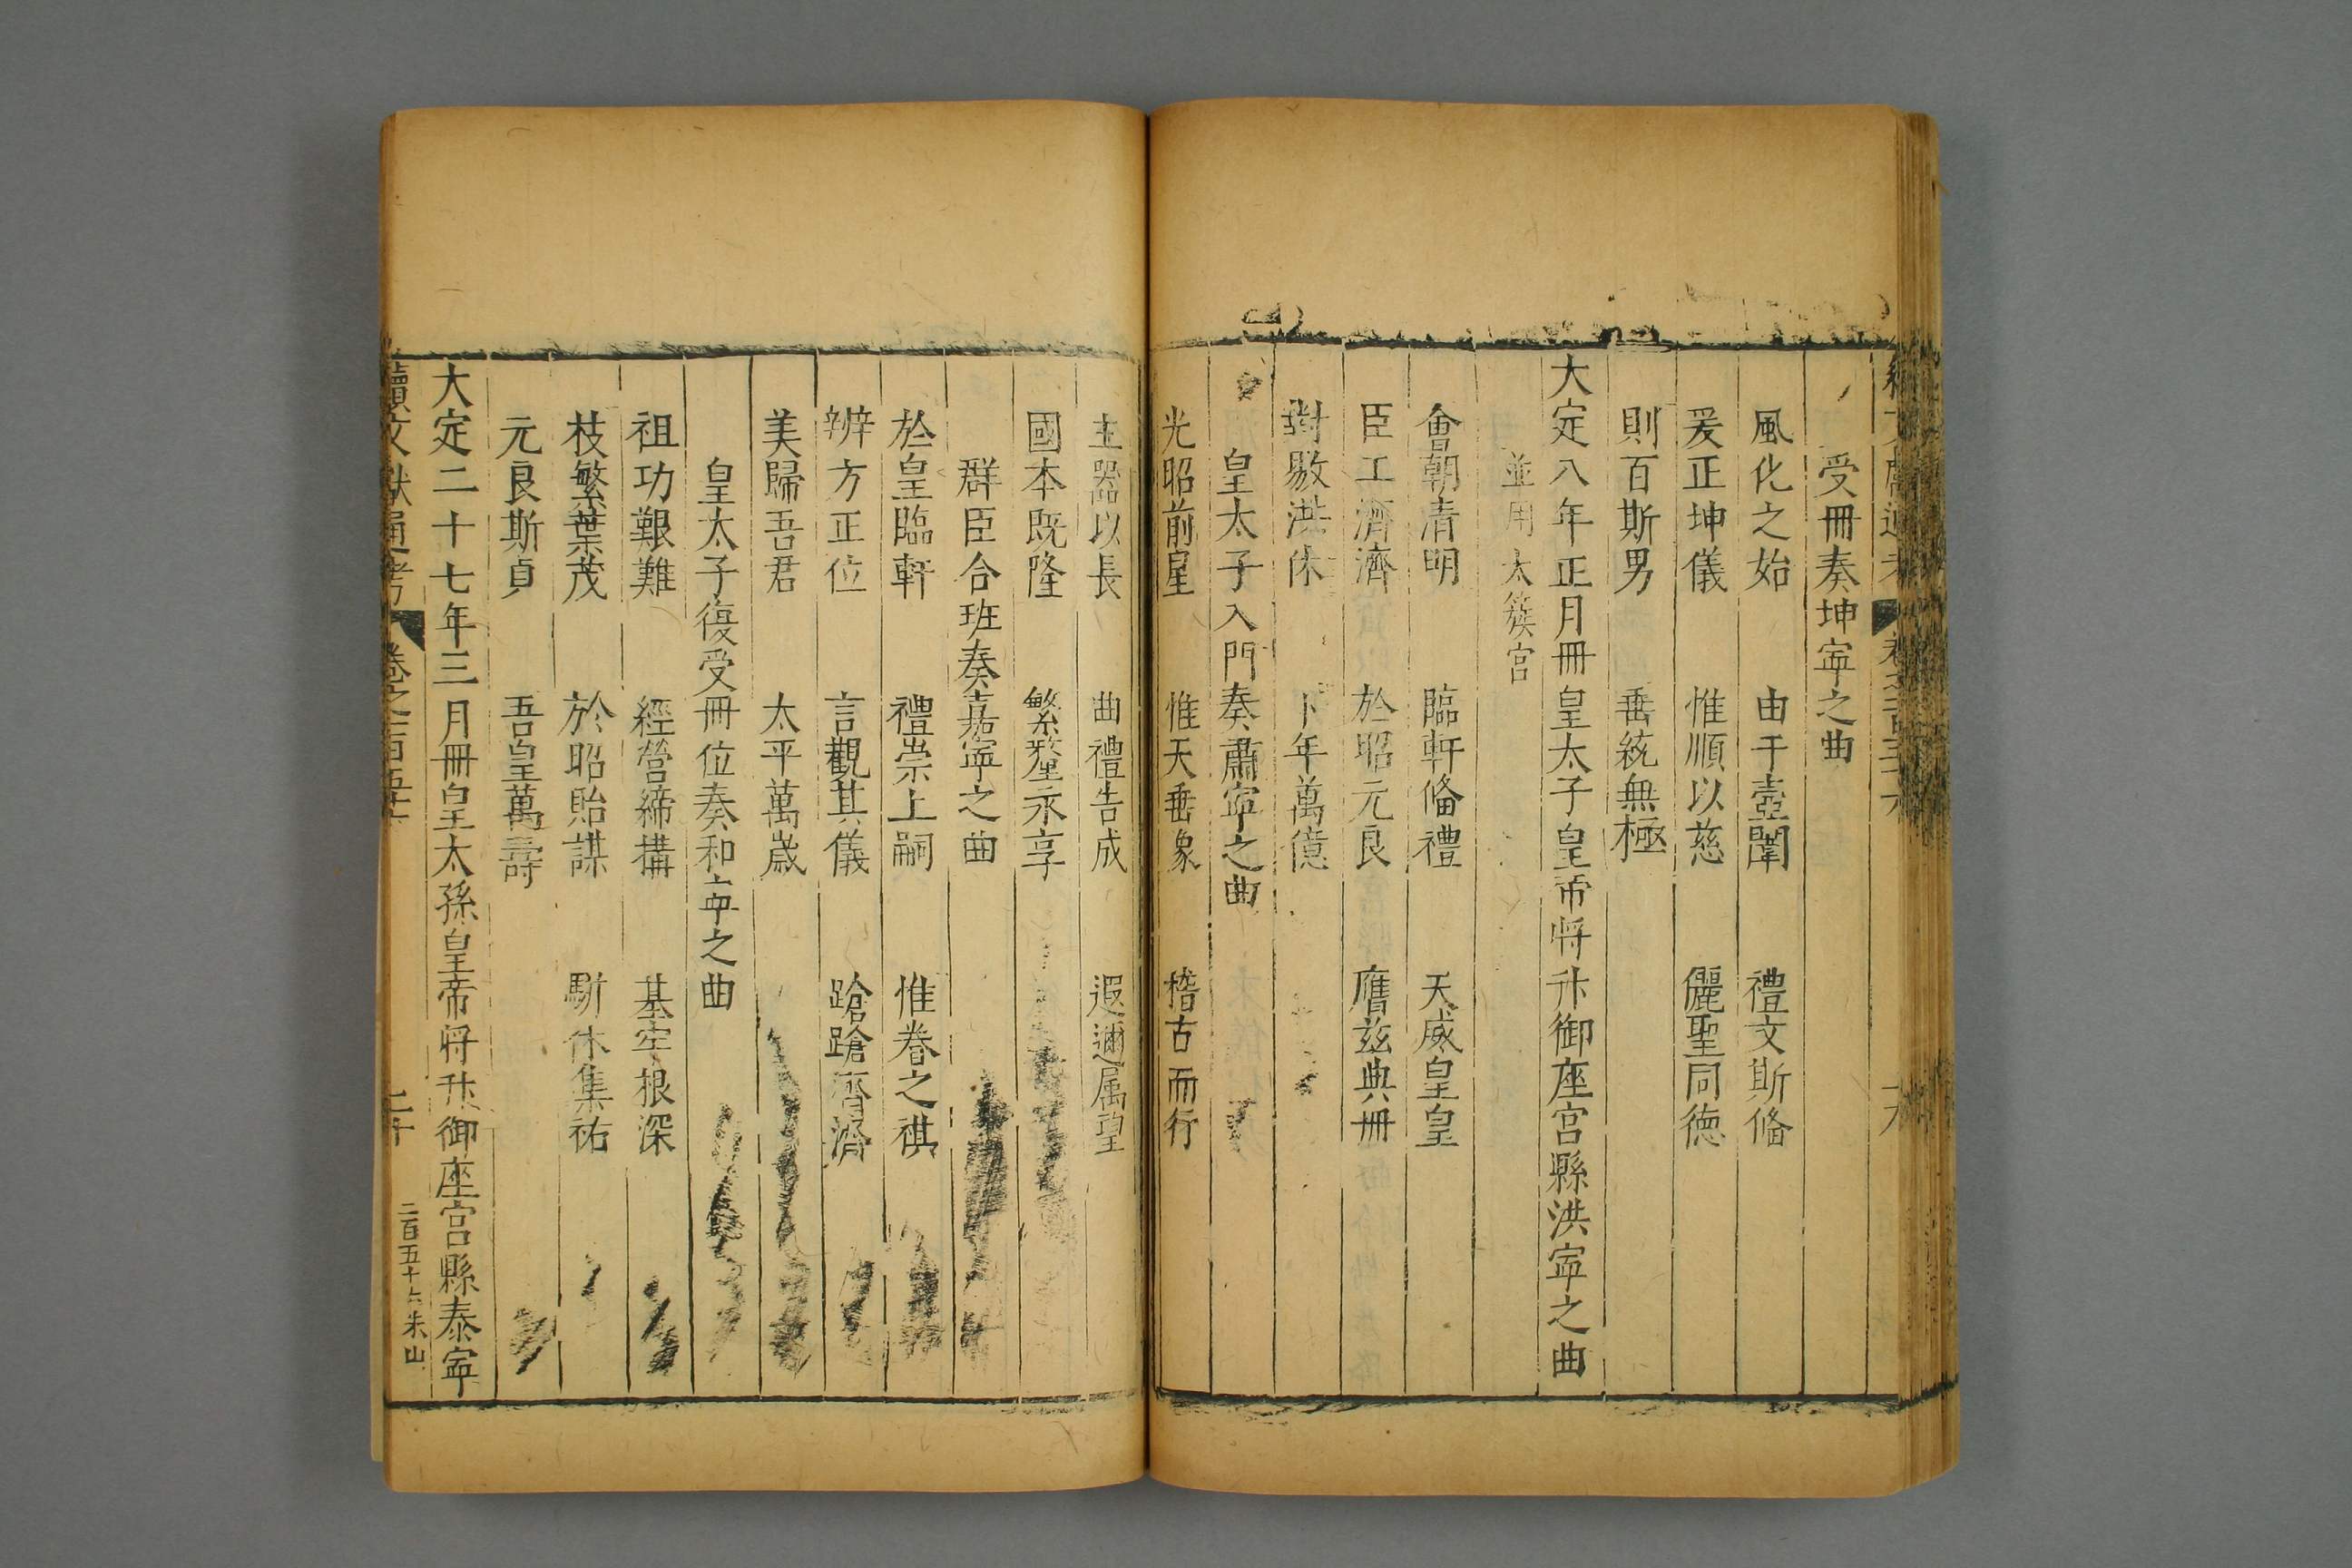 受冊奏坤寜之曲
風化之始　由于壼闈　禮文斯俻
爰正坤儀　惟順以慈　儷聖同徳
則百斯男　垂統無極
大定八年正月冊皇太子皇帝将升御座宫縣洪寜之曲
並用太簇宫
會朝清明　臨軒俻禮　天威皇皇
臣工濟濟　於昭元良　膺兹典冊
對敭洪休　卜年萬億
皇太子入門奏肅寜之曲
光昭前星　惟天垂象　稽古而行
主器以長　曲禮告成　遐邇属望
國本既隆　繁釐永享
群臣合班奏嘉寜之曲
於皇臨軒　禮崇上嗣　惟眷之祺
辨方正位　言觀其儀　蹌蹌濟濟
美歸吾君　太平萬歲
皇太子復受冊位奏和寜之曲
祖功艱難　經營締構　基牢根深
枝繁葉茂　於昭貽謀　駢休集祐
元良斯貞　吾皇萬壽
大定二十七年三月冊皇太孫皇帝将升御座宫縣泰寜
續文獻通考　卷之一百五十　二十　二百五十六朱山